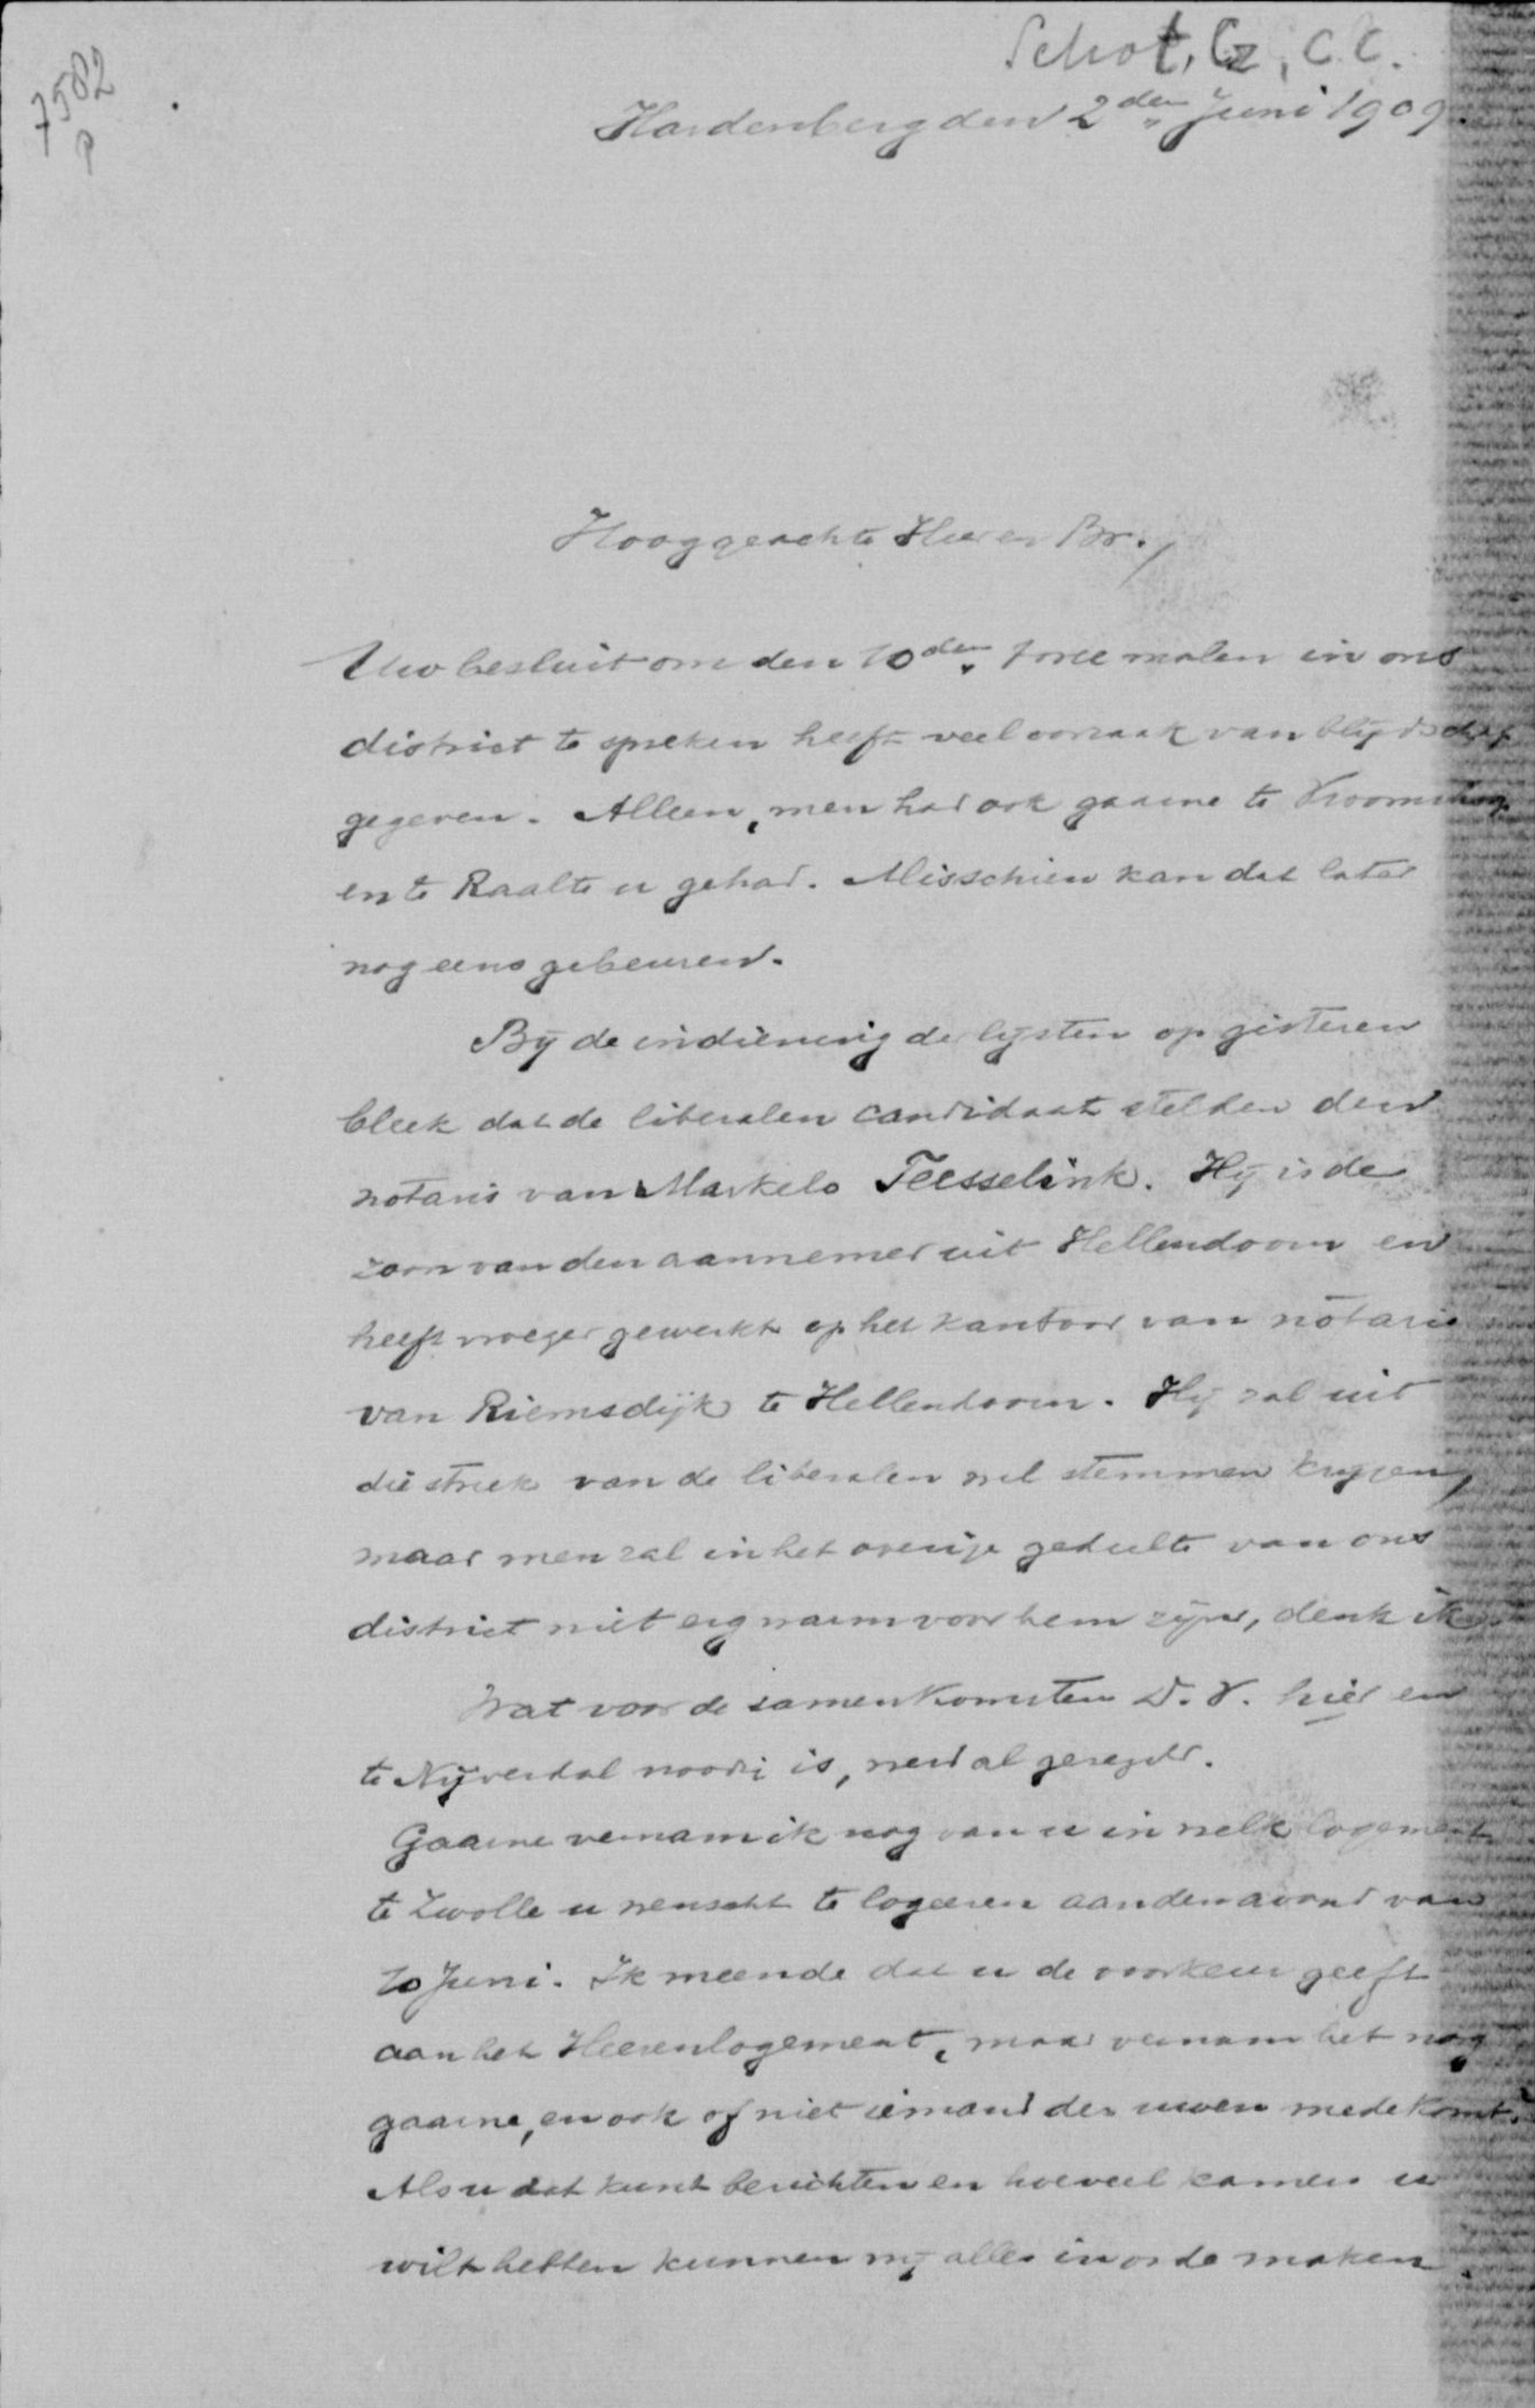 7582
P
Schot, Gz, C.C.
Hardenberg den 2den Juni 1909.
Hooggeachte Heer en Br.,
Uw besluit om den 10den twee malen in ons
district te spreken heeft veel oorzaak van blijdschap
gegeven. Alleen, men had ook gaarne te Vroomshoop
en te Raalte u gehad. Misschien kan dat later
nog eens gebeuren.
Bij de indiening der lijsten op gisteren
bleek dat de liberalen candidaat stelden den
notaris van Markelo Teesselink. Hij is de
zoon van den aannemer uit Hellendoorn en
heeft vroeger gewerkt op het kantoor van notaris
van Riemsdijk te Hellendoorn. Hij zal uit
die streek van de liberalen wel stemmen krijgen,
maar men zal in het overige gedeelte van ons
district niet erg warm voor hem zijn, denk ik.
Wat voor de samenkomsten D.V. hier en
te Nijverdal noodig is, werd al geregeld.
Gaarne vernam ik nog van u in welk logement
te Zwolle u wenscht te logeeren aan den avond van
10 Juni. Ik meende dat u de voorkeur geeft
aan het Heerenlogement, maar vernam het nog
gaarne, en ook of niet iemand der uwen mede komt.
Als u dat kunt berichten en hoeveel kamers u
wilt hebben kunnen wij alles in orde maken.